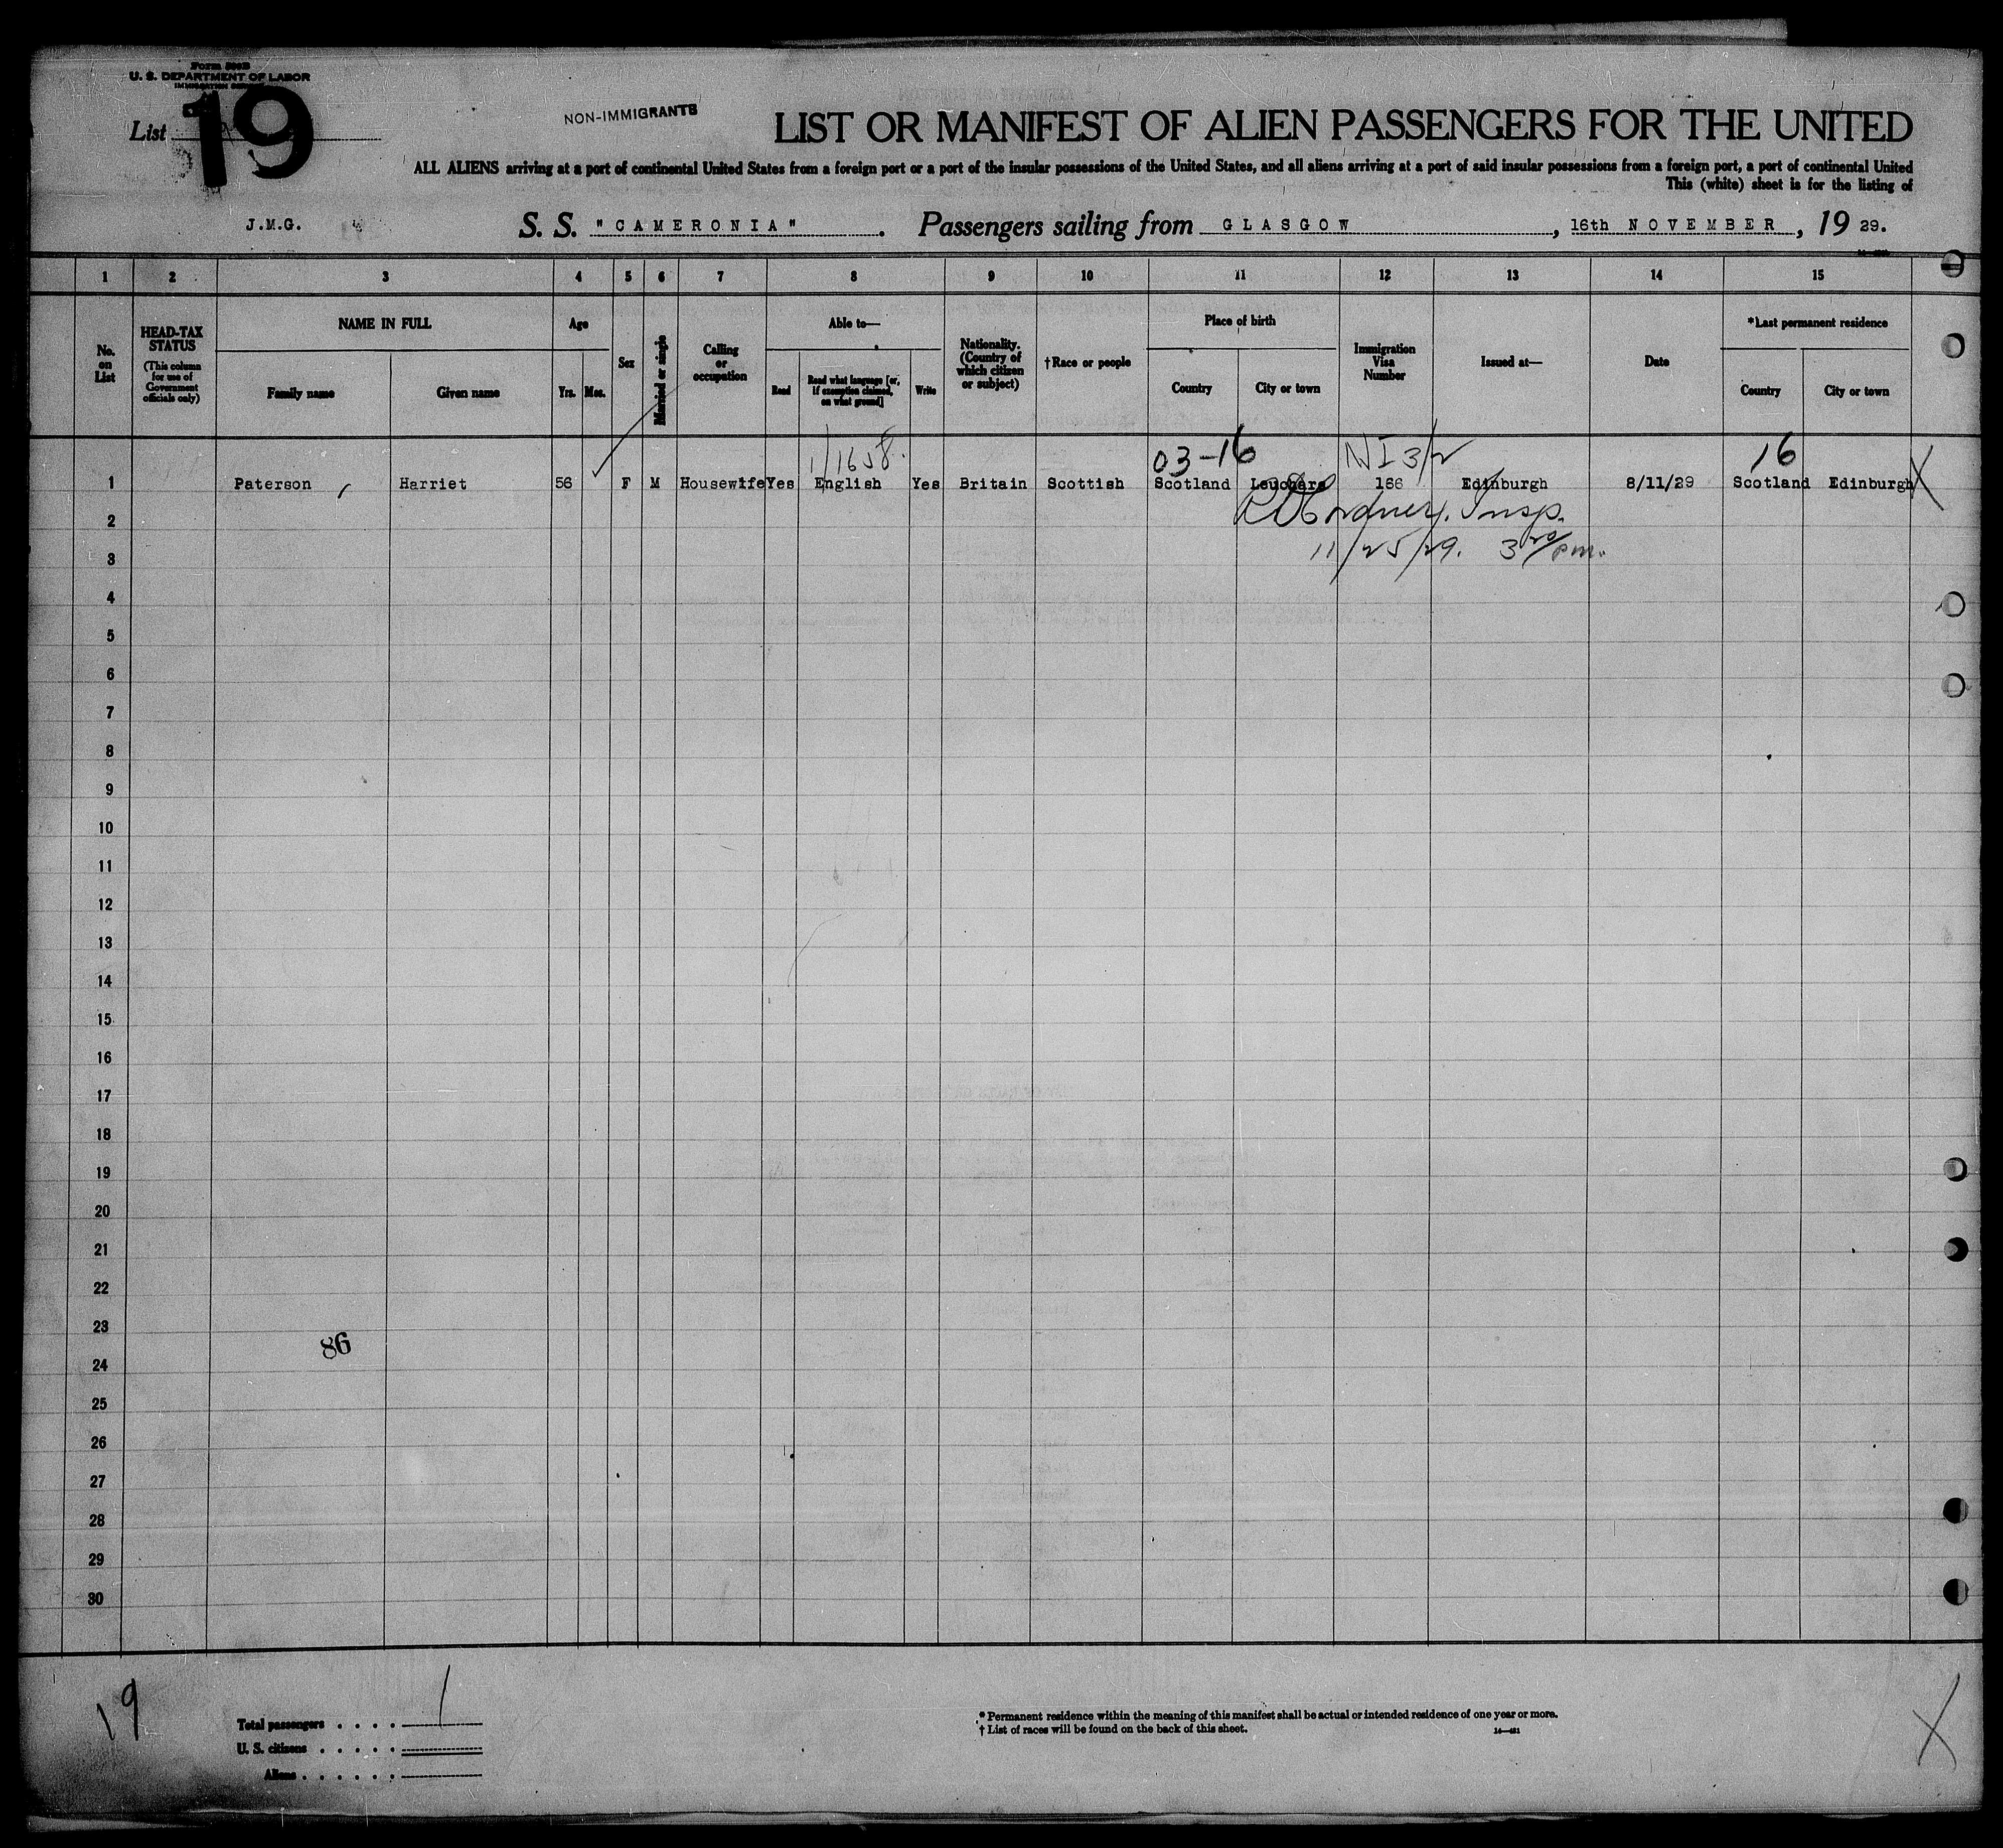 U. S. DEPARTMENT OF LABOR
List 19
NON-IMMIGRANTS
LIST OR MANIFEST OF ALIEN PASSENGERS FOR THE UNITED
ALL ALIENS arriving at a port of continental United States from a foreign port or a port of the insular possessions of the United States, and all aliens arriving at a port of said insular possessions from a foreign port, a port of continental United
This (white) sheet is for the listing of
J.M.G. S. S. "CAMERONIA". Passengers sailing from GLASGOW, 16th NOVEMBER, 19 29.
1 2 3 4 5 6 7 8 9 10 11 12 13 14 15
No. on List
HEAD-TAX STATUS (This column for use of Government officials only)
NAME IN FULL
Family name Given name
Age
Yrs. Mos.
Sex
Married or single
Calling or occupation
Able to—
Read Read what language [or, if exemption claimed, on what ground] Write
Nationality. (Country of which citizen or subject)
†Race or people
Place of birth
Country City or town
Immigration Visa Number
Issued at—
Date
*Last permanent residence
Country City or town
03-16 NI 3/2 16
1 Paterson, Harriet 56 F M Housewife Yes English Yes Britain Scottish Scotland Leuchars 166 Edinburgh 8/11/29 Scotland Edinburgh X
2 Insp.
3 11/25/29. 3 20/pm.
4
5
6
7
8
9
10
11
12
13
14
15
16
17
18
19
20
21
22
23
86
24
25
26
27
28
29
30
19
Total passengers . . . . 1
U. S. citizens . . . . .
Aliens . . . . . .
* Permanent residence within the meaning of this manifest shall be actual or intended residence of one year or more.
† List of races will be found on the back of this sheet.
X